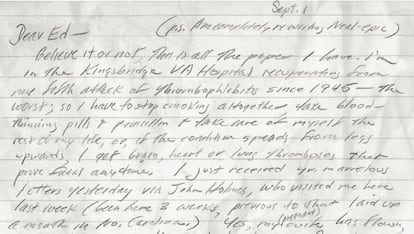 Sept. 1
Dear Ed— (p.s. Am completely rewording Neal-epic)
Believe it or not, this is all the paper I have. I'm
in the Kingsbridge VA Hospital recuperating from
my fifth attack of thrombophlebitis since 1945 — the
worst; so I have to stop smoking altogether take blood-
thinning pills & penicillin & take care of myself the
rest of my life, or, if the condition spreads from legs
upwards, I get brain, heart or lung thromboses that
prove fatal anytime. I just received yr. marvelous
letters yesterday via John Holmes, who visited me here
last week (been here 3 weeks, previous to that laid up
a month in No. Carolina.) Yes, my wife has flown,